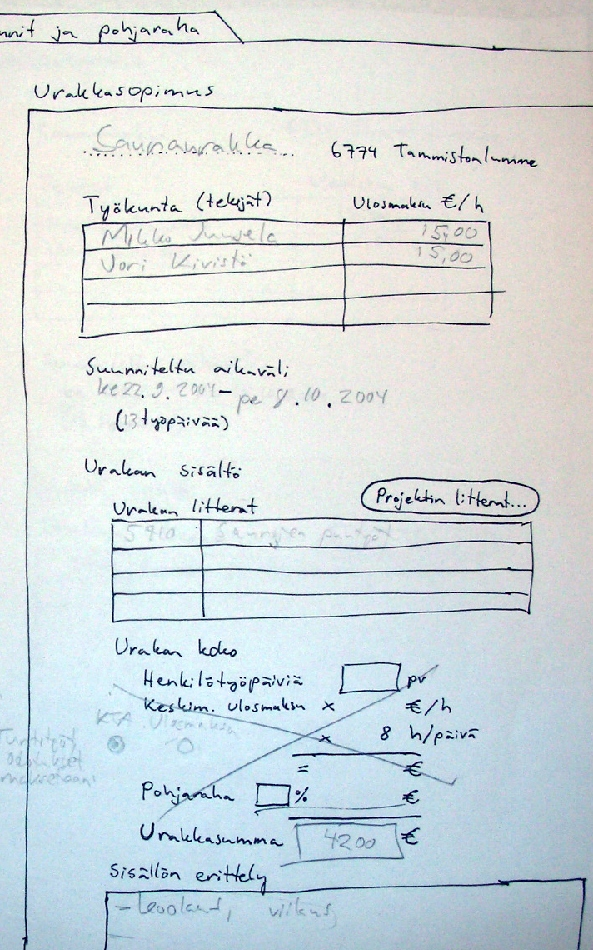 ja pohjaraha
Urakkasopimus
Saunaurakka 6774 Tammistonlumme
Työkunta (tekijät) Ulosmaksu €/h
Mikko 15,00
Jori Kivistö 15,00
Suunniteltu aikaväli
ke 22.9.2004 – pe 8.10.2004
(13 työpäivää)
Urakan sisältö
Urakan litterat Projektin litterat...
5410 Saunojen puutyöt
Urakan koko
Henkilötyöpäiviä pv
Keskim. ulosmaksu x €/h
KTA Ulosmaksu
x 8 h/päivä
= €
Pohjaraha % €
Urakkasumma 4200 €
Sisällön erittely